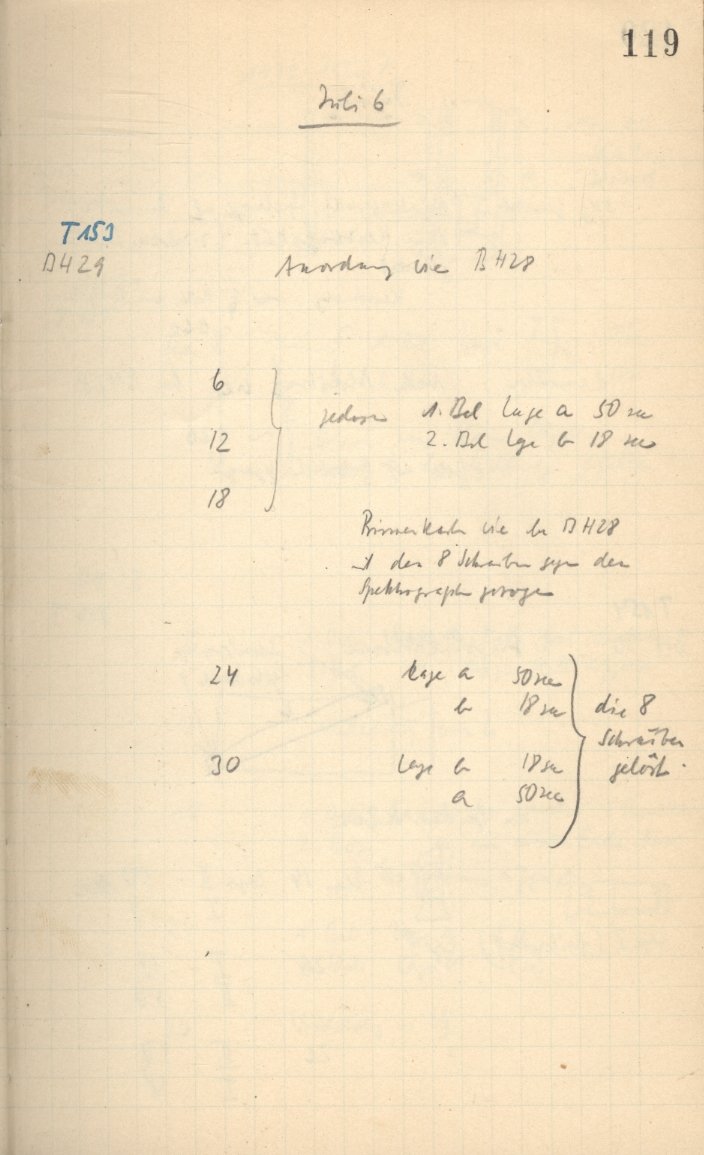 119
Juli 6
T153
B429
Anordnung wie B428
6
12
18
jedesmal 1. Bel Lage a 50 sec
2. Bel Lage b 18 sec
Prismenkasten wie bei B428
mit den 8 Schrauben gegen den
Spektrograph gezogen
24 Lage a 50 sec
b 18 sec
30 Lage b 18 sec
a 50 sec
die 8
Schrauben
gelöst.